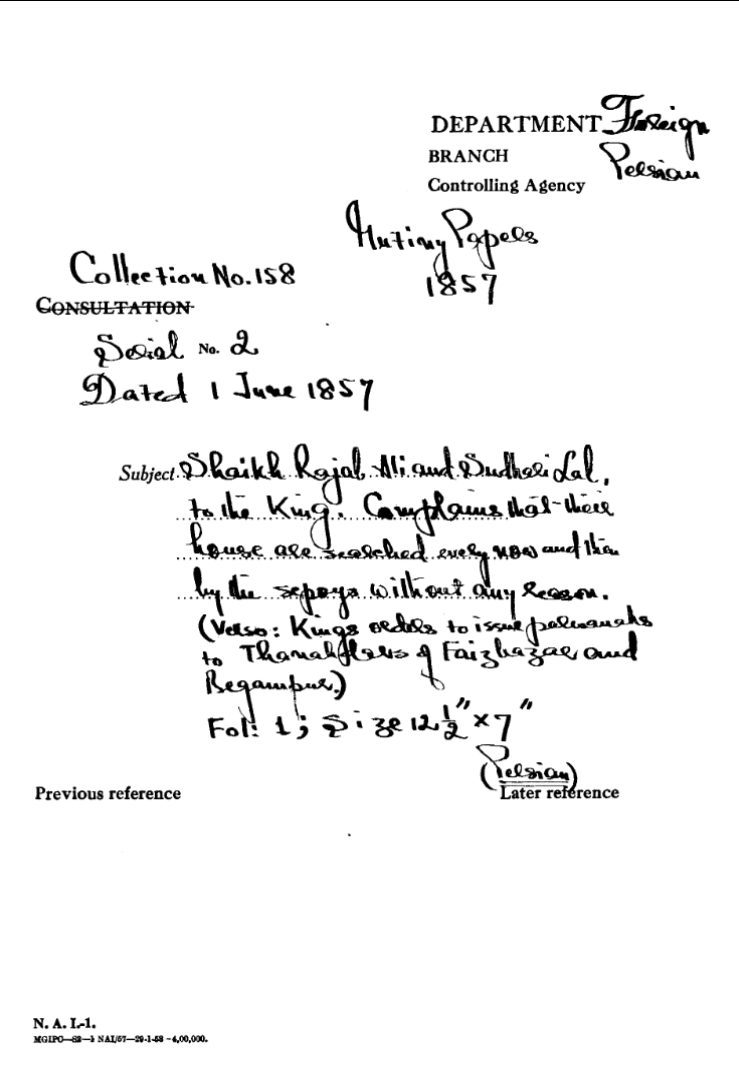 DEPARTMENT Foreign
BRANCH Persian
Controlling Agency
Mutiny Papers
1857
Collection No. 158
CONSULTATION
Serial No. 2
Dated 1 June 1857
Subject Shaikh Rajab Ali and Sudhari Lal,
to the King. Complains that there
house are searched every now and then
by the sepoys without any reason.
(Verso: Kings orders to issue parwanahs
to Thanah of Faizbazar and
Begampur.)
Fol: 1; Size 12 1/2" x 7"
(Persian)
Previous reference Later reference
N. A. I.-1.
MGIPC—S2—1 NAI/57—29-1-58 -4,00,000.